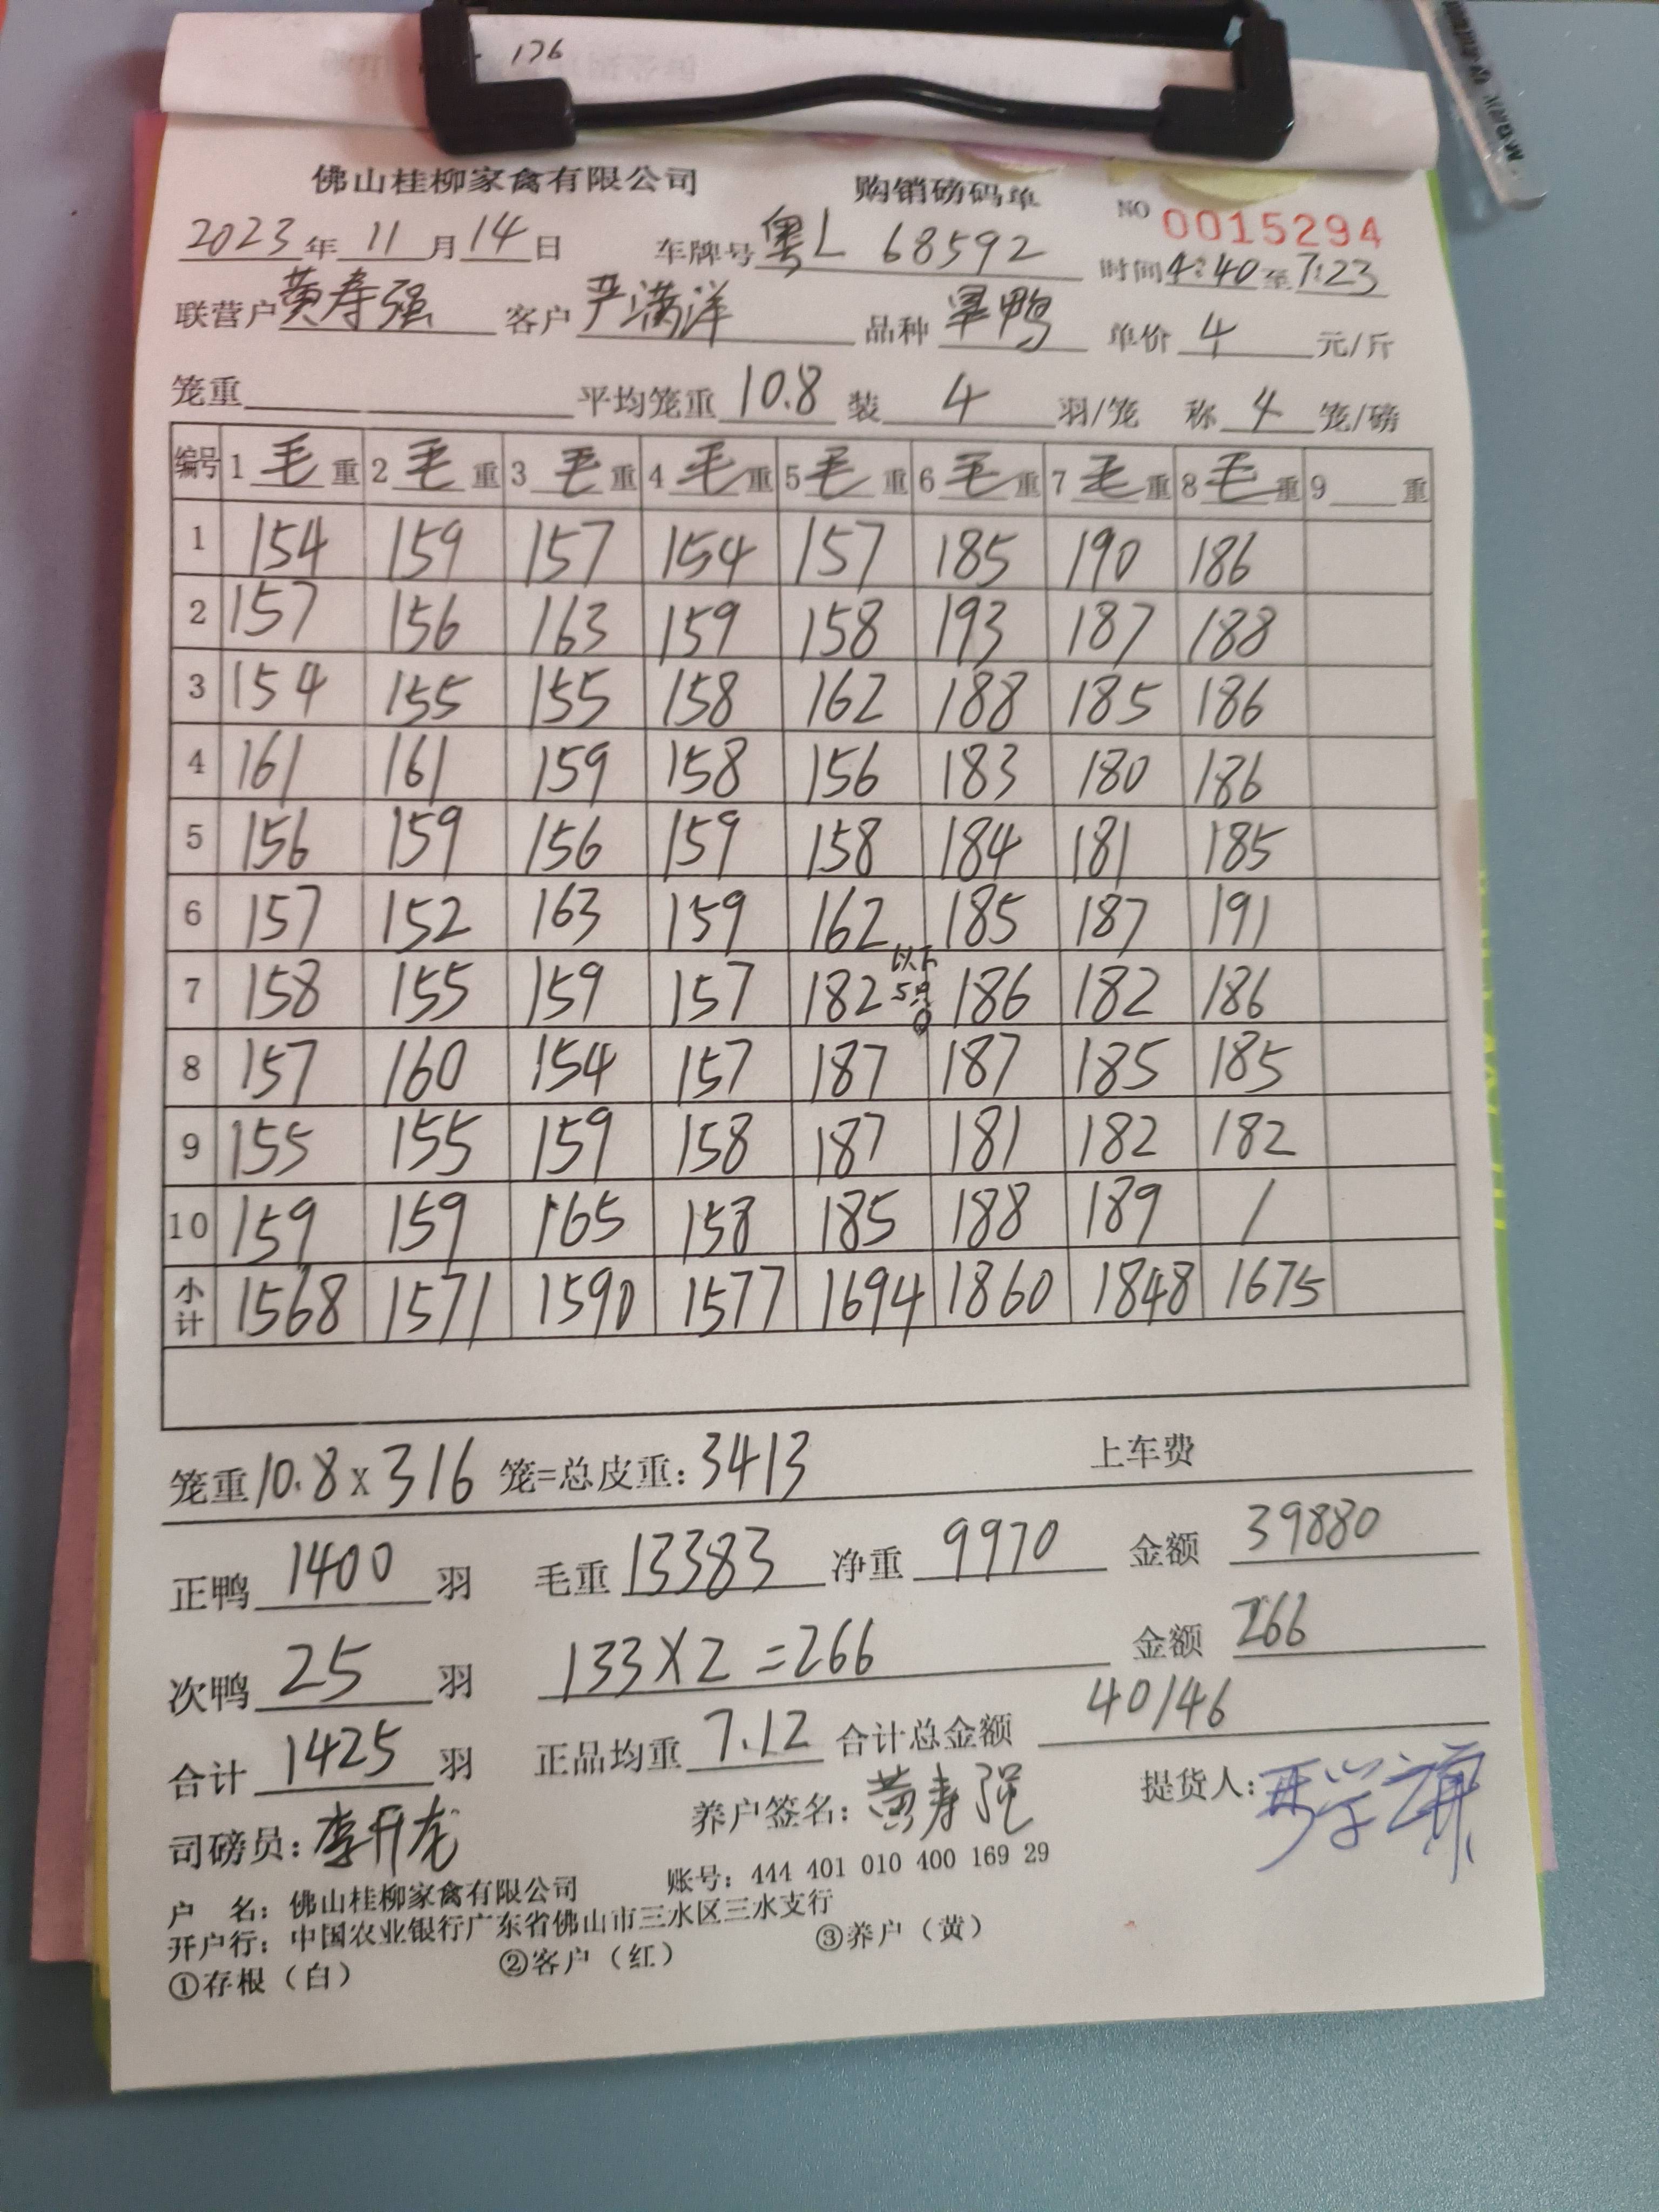 176
佛山桂柳家禽有限公司 购销磅码单 NO 0015294
2023年11月14日 车牌号 粤L 68592 时间4:40至7:23
联营户 黄寿强 客户 严满洋 品种 旱鸭 单价 4 元/斤
笼重 平均笼重 10.8 装 4 羽/笼 称 4 笼/磅
编号 1 毛 重 2 毛 重 3 毛 重 4 毛 重 5 毛 重 6 毛 重 7 毛 重 8 毛 重 9 重
1 154 159 157 154 157 185 190 186
2 157 156 163 159 158 193 187 188
3 154 155 155 158 162 188 185 186
4 161 161 159 158 156 183 180 186
5 156 159 156 159 158 184 181 185
6 157 152 163 159 162 185 187 191
7 158 155 159 157 182 以下5只 186 182 186
8 157 160 154 157 187 187 185 185
9 155 155 159 158 187 181 182 182
10 159 159 165 158 185 188 189 /
小计 1568 1571 1590 1577 1694 1860 1848 1675
笼重10.8x316 笼=总皮重:3413 上车费
正鸭 1400 羽 毛重 13383 净重 9970 金额 39880
次鸭 25 羽 133X2=266 金额 266
合计 1425 羽 正品均重 7.12 合计总金额 40146
司磅员:李升龙 养户签名:黄寿强 提货人:
户 名:佛山桂柳家禽有限公司 账号:444 401 010 400 169 29
开户行:中国农业银行广东省佛山市三水区三水支行
①存根(白) ②客户(红) ③养户(黄)